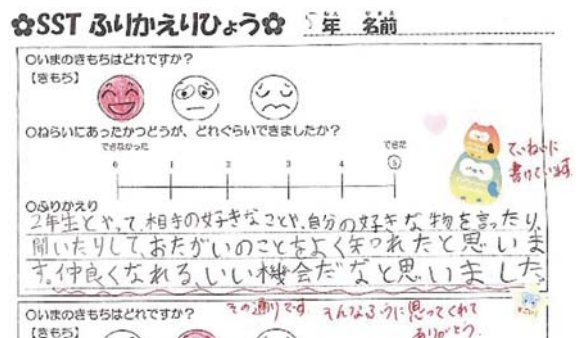 ✿SST ふりかえりひょう✿ 5年 名前
〇いまのきもちはどれですか？
【きもち】
〇ねらいにあったかつどうが、どれぐらいできましたか？
できなかった できた
0 1 2 3 4 5
ていねいに
書けています
〇ふりかえり
2年生とやって、相手の好きなことや、自分の好きな物を言ったり、
聞いたりして、おたがいのことをよく知れたと思いま
す。仲良くなれる、いい機会だなと思いました。
〇いまのきもちはどれですか？
その通りです。そんなふうに思ってくれて
ありがとう。
【きもち】